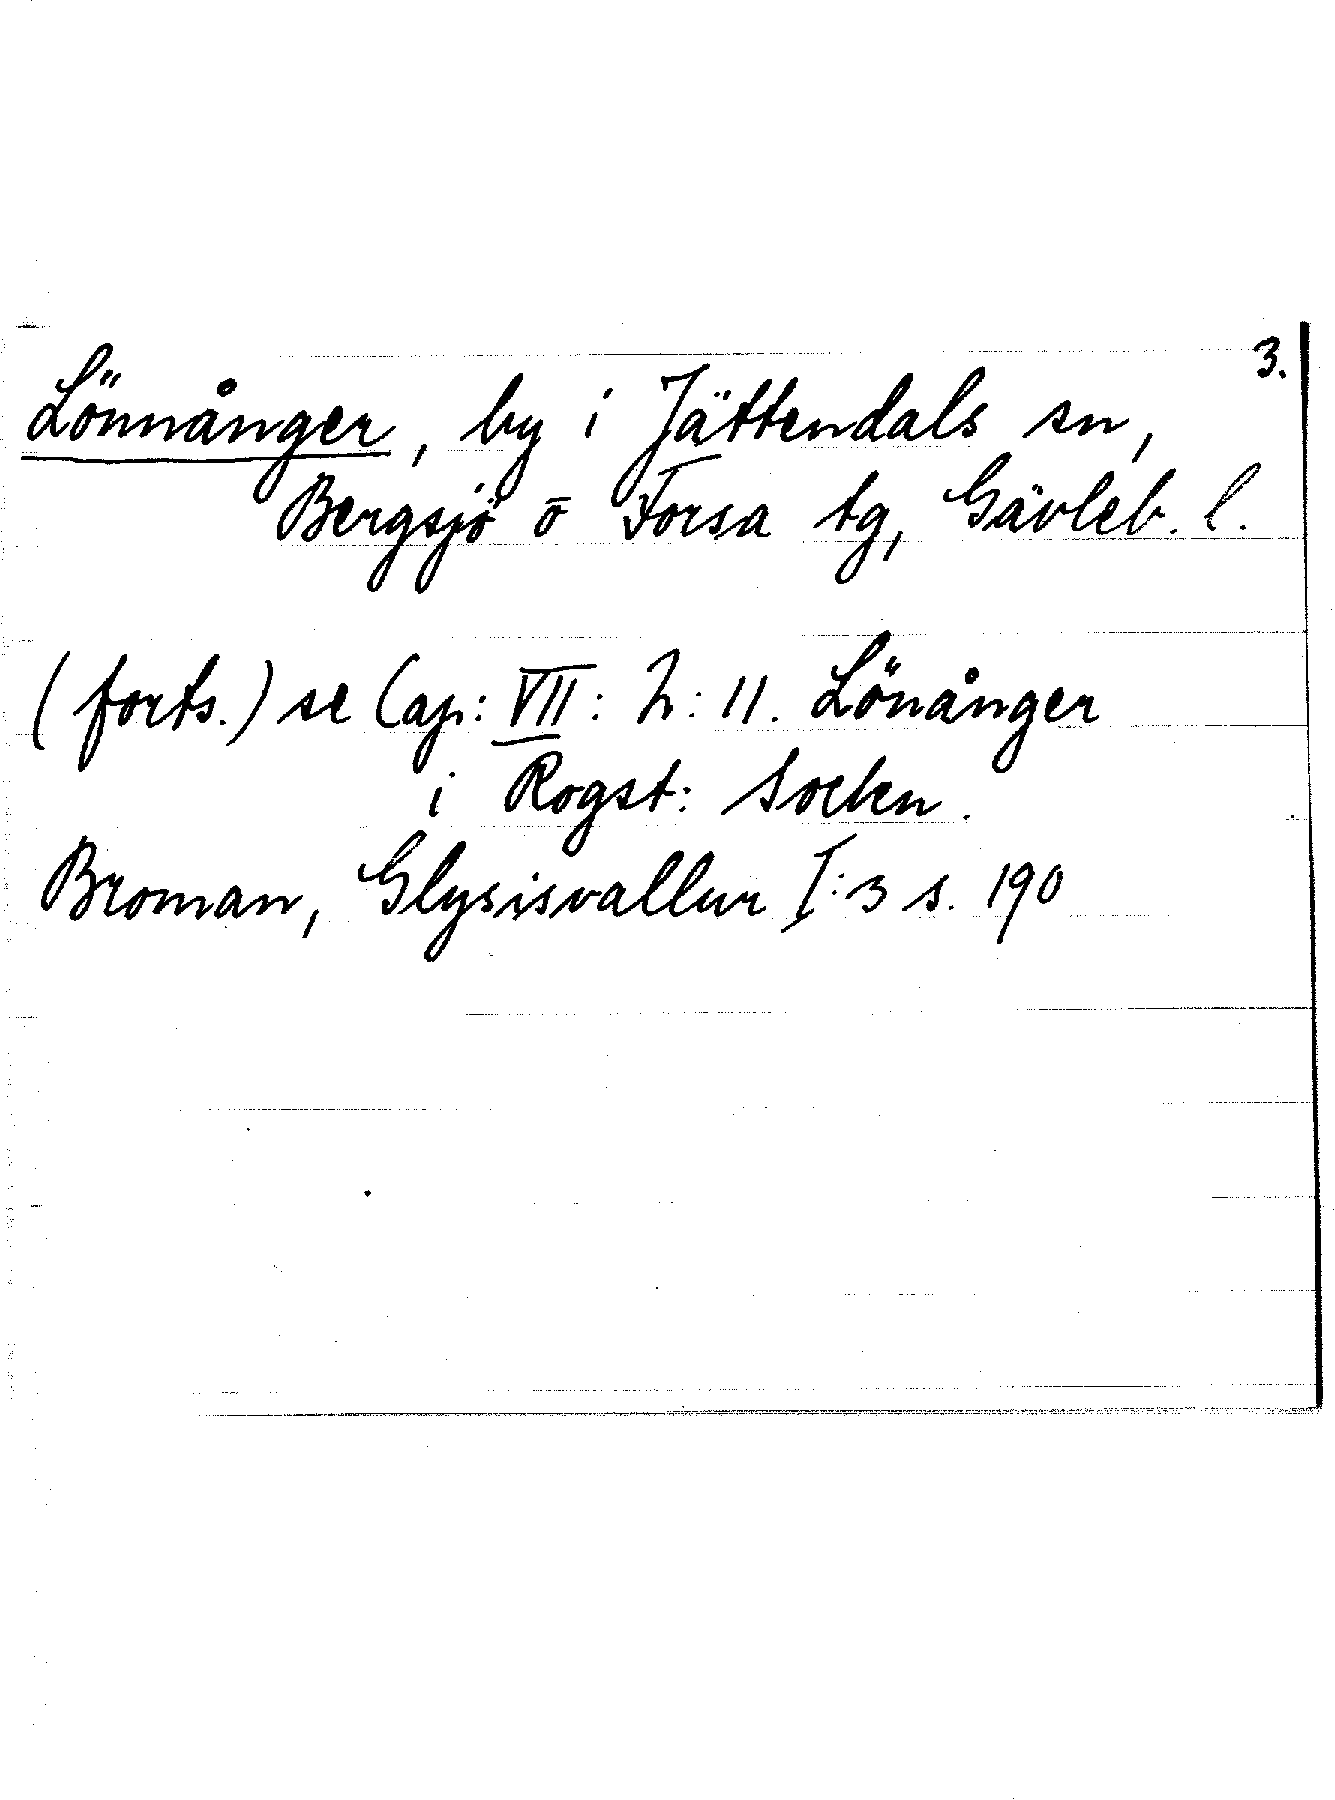 3.
Lönnånger, by i Jättendals sn,
Bergsjö o Forsa tg, Gävleb. l.
(forts.) se Cap: VII: h: 11. Lönånger
i Rogst: Socken.
Broman, Glysisvallur I:3 s. 190